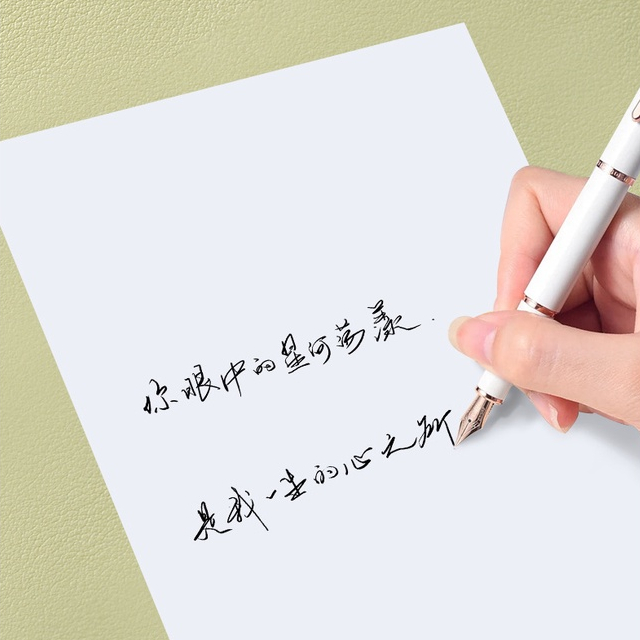 你眼中的星河荡漾.
是我一生的心之所